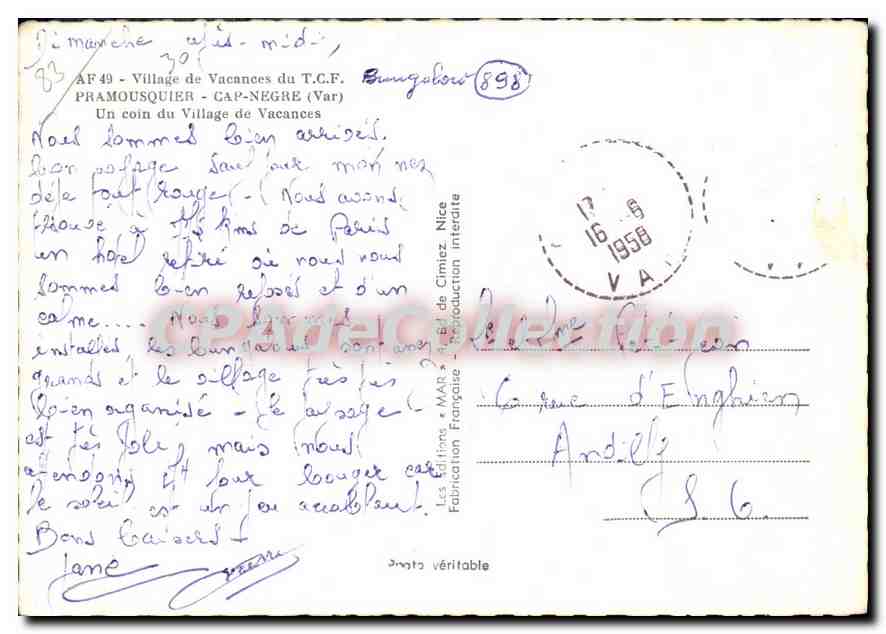 Dimanche après-midi,
30
83
AF 49 - Village de Vacances du T.C.F.
PRAMOUSQUIER - CAP-NEGRE (Var)
Un coin du Village de Vacances
Bungalow 898
Nous sommes bien arrivés.
bon voyage sauf pour mon nez
déjà tout rouge - Nous avons
trouvé à kms de Paris
un hôtel retiré où nous nous
sommes bien reposés et d'un
calme.... Nous sommes
installés les bungalows sont assez
grands et le village très très
bien organisé - le paysage
est très joli, mais nous
attendons pour bouger car
le soleil est un peu accablant.
Bons baisers -
Jane
Les Editions « MAR » Bd de Cimiez, Nice
Fabrication Française - Reproduction interdite
CPA de Collection
16 6
1958
VAR
et Mme
rue d'Enghien
Andilly
S. O.
Photo véritable